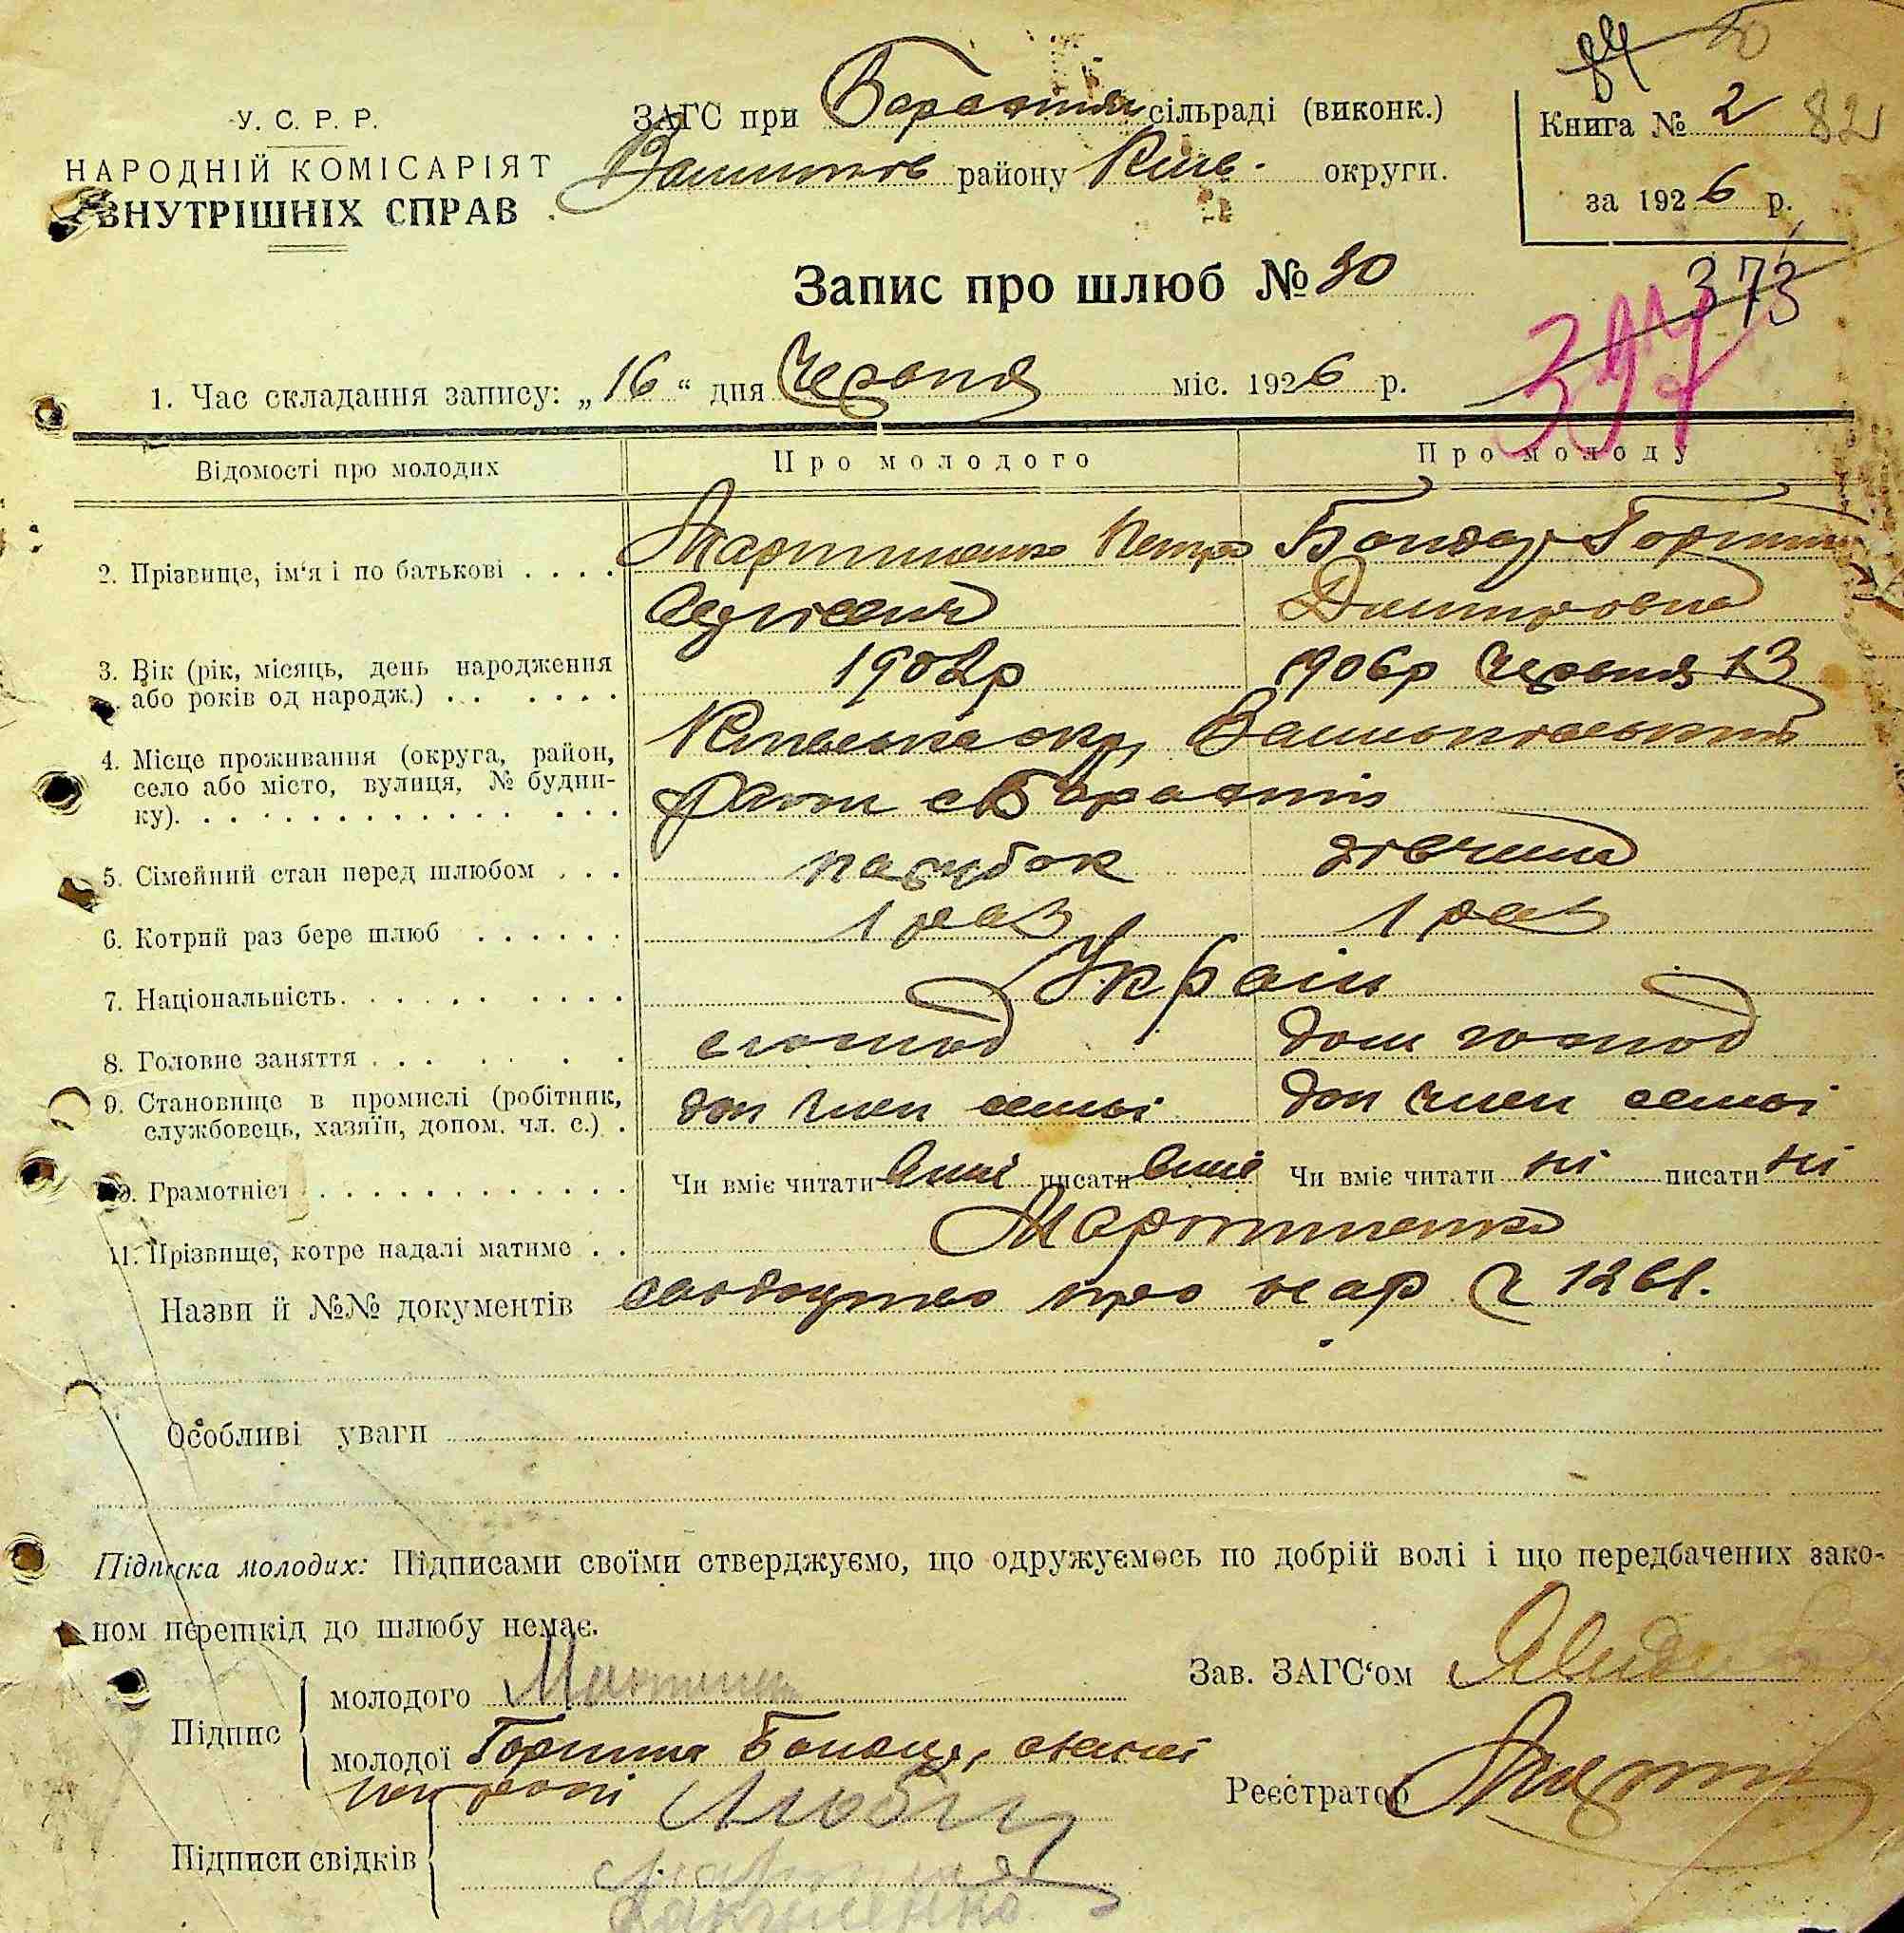 У. С. Р. Р.
НАРОДНІЙ КОМІСАРІЯТ
ВНУТРІШНІХ СПРАВ
ЗАГС при сільраді (виконк.)
району Київ. округи.
84
Книга № 2 82
за 1926 р.
Запис про шлюб № 30
373
397
1. Час складання запису: „16“ дня Червня міс. 1926 р.
Відомості про молодих Про молодого Про молоду
2. Прізвище, ім‘я і по батькові . . . . Мартиненко Петро Бондар Горпина
Сергієвич Дмитровна
3. Вік (рік, місяць, день народження
або років од народж.) . . . . . . 1902р 1906р Червня 13
4. Місце проживання (округа, район,
село або місто, вулиця, № будин-
ку). . . . . . . . . . . . . . . . Київська окр, Васильківський
район с
5. Сімейний стан перед шлюбом . . . парубок дівчина
6. Котрий раз бере шлюб . . . . . . 1 раз 1 раз
7. Національність. . . . . . . . . . Україн
8. Головне заняття . . . . . . дом господ
9. Становище в промислі (робітник,
службовець, хазяїн, допом. чл. с.) . доп член семьї доп член семьї
10. Грамотніст . . . . . . . . . . . Чи вміє читати вміє писати вміє Чи вміє читати ні писати ні
11. Прізвище, котре надалі матиме . . Мартиненко
Назви й №№ документів про нар 1261.
Особливі уваги
Підписка молодих: Підписами своїми стверджуємо, що одружуємось по добрій волі і що передбачених зако-
ном перешкід до шлюбу немає.
Зав. ЗАГС‘ом
Підпис
молодого
молодої Горпина Бондар,
Реєстратор
Підписи свідків